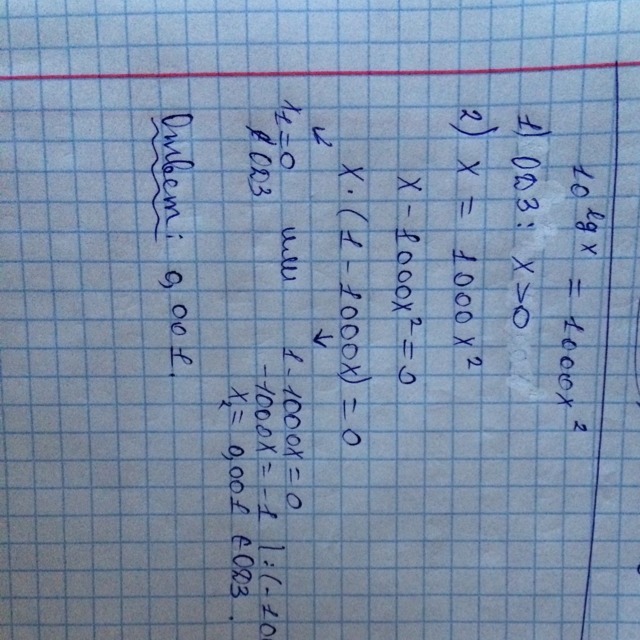 10^lgx = 1000x²
1) ОДЗ: x>0
2) x = 1000x²
x - 1000x² = 0
x·(1-1000x) = 0
↙ ↘
x₁=0 или 1-1000x=0
∉ ОДЗ -1000x = -1 |:(-100
x₂ = 0,001 ∈ ОДЗ.
Ответ: 0,001.